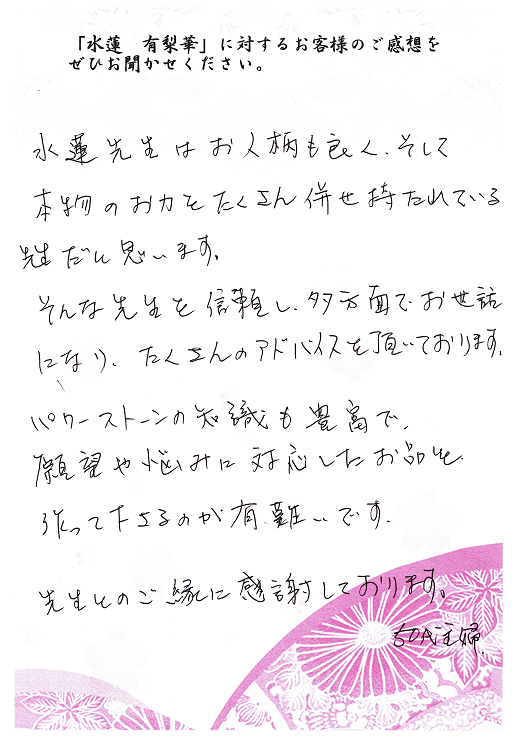 「水蓮　有梨華」に対するお客様のご感想を
ぜひお聞かせください。
水蓮先生はお人柄も良く、そして
本物のお力をたくさん併せ持たれている
先生だと思います。
そんな先生を信頼し、多方面でお世話
になり、たくさんのアドバイスを頂いております。
パワーストーンの知識も豊富で、
願望や悩みに対応したお品を
作って下さるのが有難いです。
先生とのご縁に感謝しております。
50代主婦.